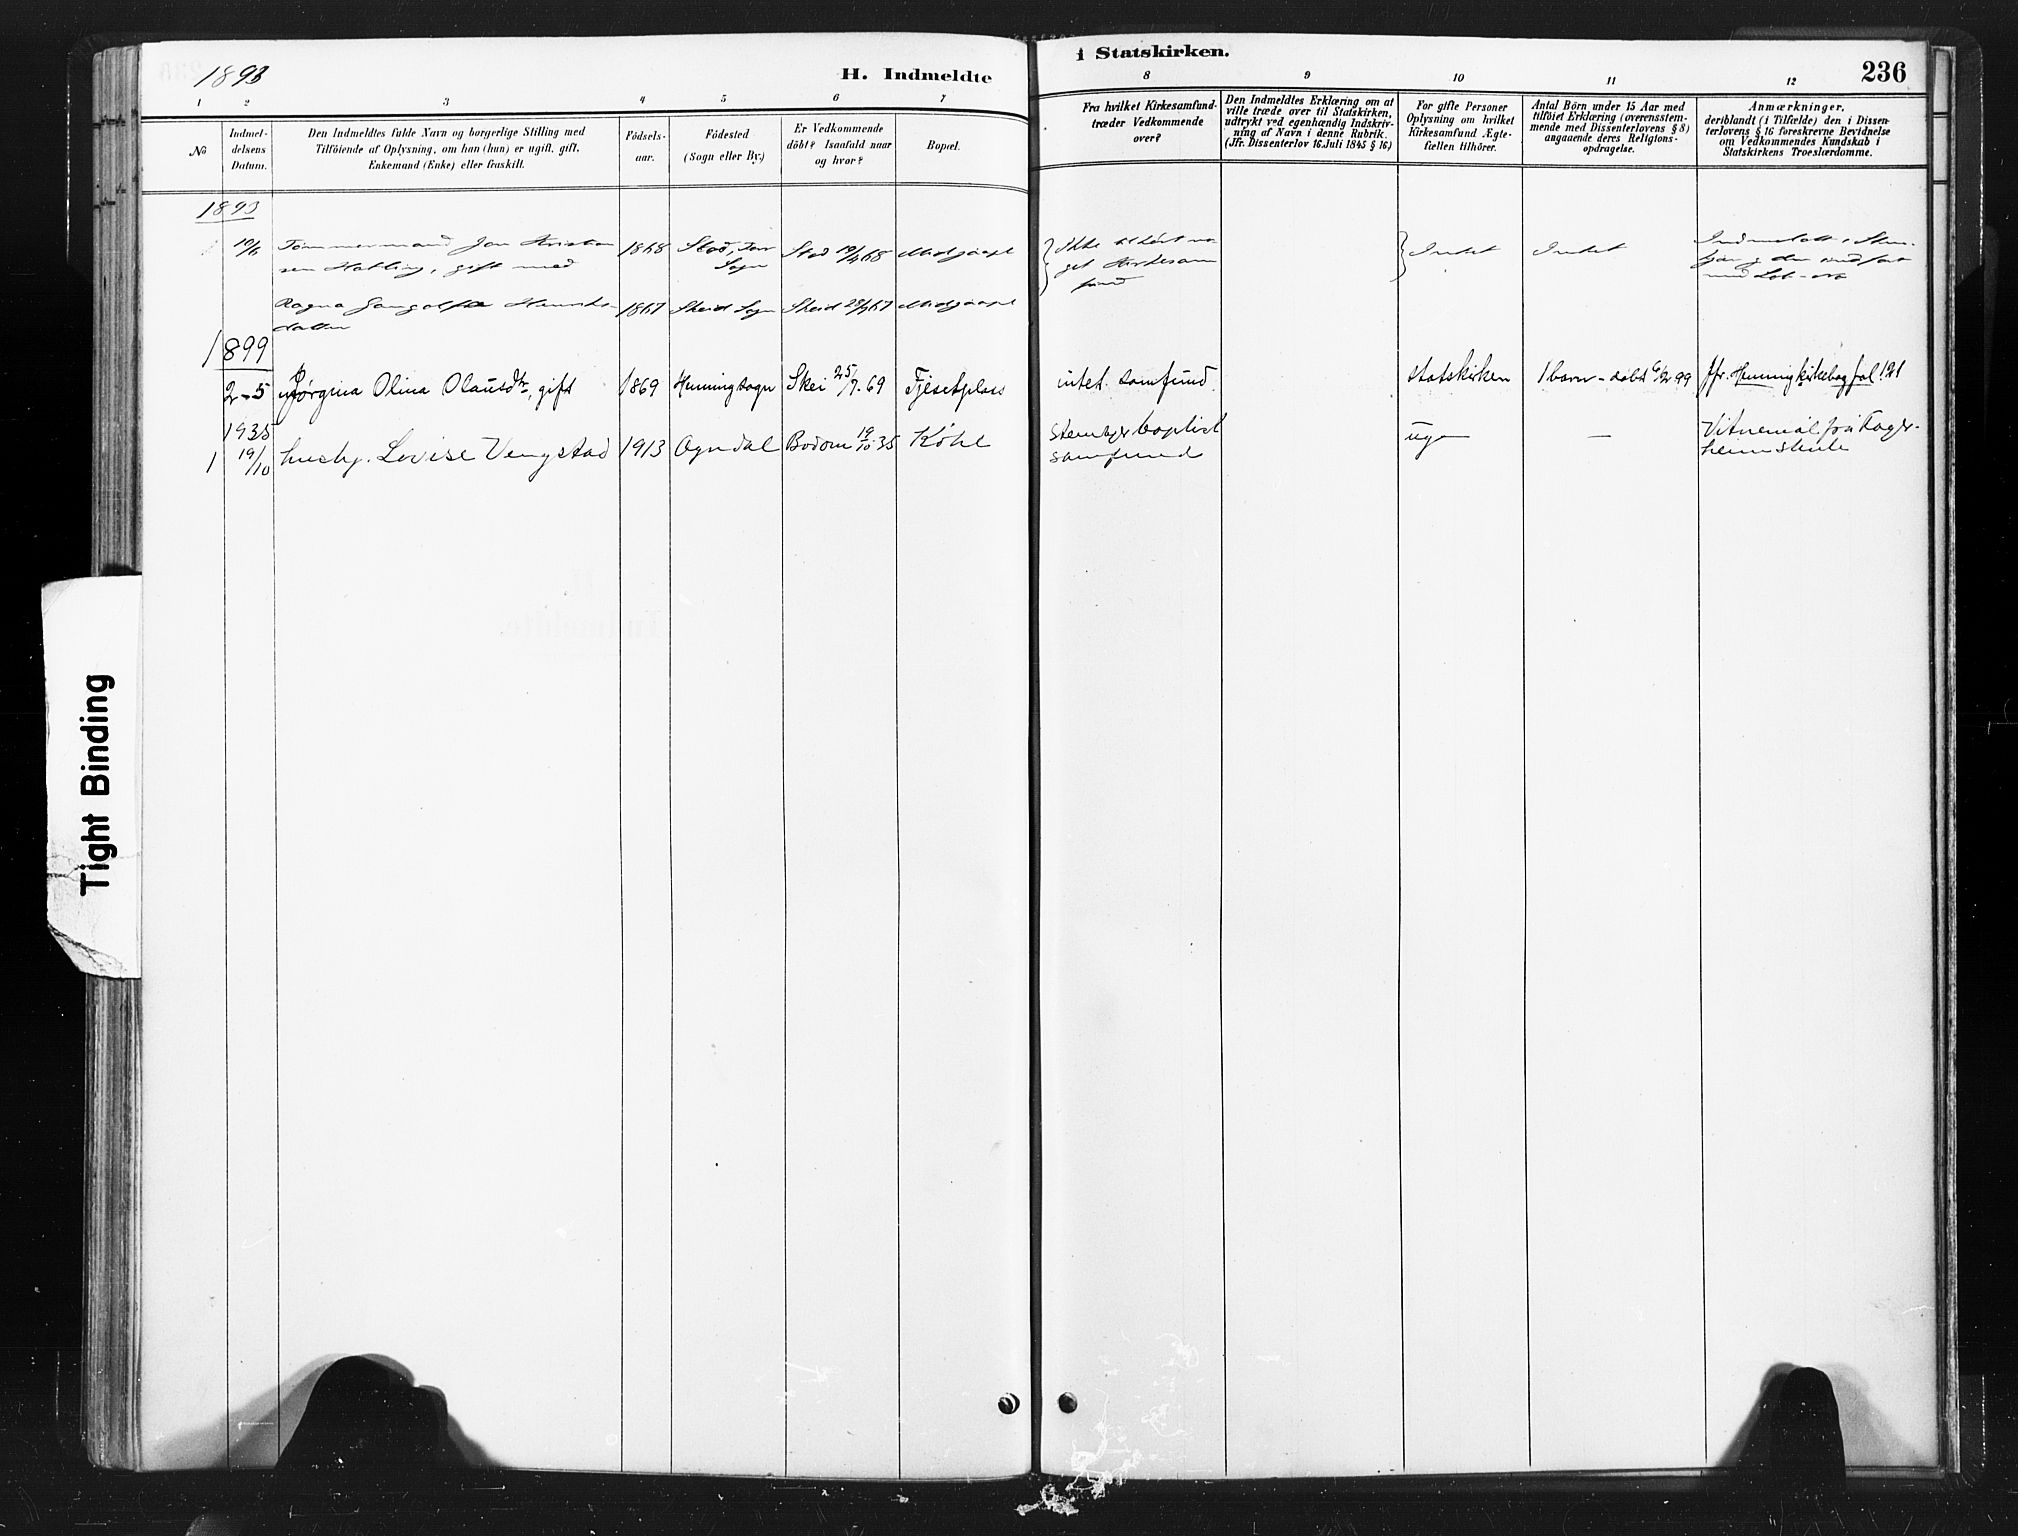 1893
H. Indmeldte
i Statskirken.
236
1 2 3 4 5 6 7 8 9 10 11 12
No
Indmel-
delsens
Datum.
Den Indmeldtes fulde Navn og borgerlige Stilling med
Tilföiende af Oplysning, om han (hun) er ugift, gift,
Enkemand (Enke) eller fraskilt.
Födsels-
aar.
Födested
(Sogn eller By.)
Er Vedkommende
döbt? Isaafald naar
og hvor?
Bopæl.
Fra hvilket Kirkesamfund-
træder Vedkommende
over?
Den Indmeldtes Erklæring om at
ville træde over til Statskirken,
udtrykt ved egenhændig Indskriv-
ning af Navn i denne Rubrik.
(Jfr. Dissenterlov 16.Juli 1845 § 16)
For gifte Personer
Oplysning om hvilket
Kirkesamfund Ægte-
fællen tilhörer.
Antal Börn under 15 Aar med
tilföiet Erklæring (overensstem-
mende med Dissenterlovens § 8)
angaaende deres Religions-
opdragelse.
Anmærkninger,
deriblandt (i Tilfælde) den i Dissen-
terlovens § 16 foreskrevne Bevidnelse
om Vedkommendes Kundskab i
Statskirkens Troeslærdomme.
1893
Tömmermand Jon Kristian
sen gift med
1868
Stod
Sogn
Stod
Ikke tilhört no
get Kirkesam
fund
Intet
Intet
Ragna
datter
1867 Skeid Sogn Skeid
1899
2-5 Jörgina Olina Olausdtr, gift 1869 Henningsogn Skei 25/7-69 Fjesetplass intet samfund. statskirken 1 barn - döbt 6/2 99 Jfr. Henning kirkebog fol 121
1935
1 19/10 husby. Lovise Vengstad 1913 Ogndal Bodom 19/10 35 Köhl
Stenkjer baptist
samfund
ug
—
Vitnemål frå Fager-
heim skule
Tight Binding